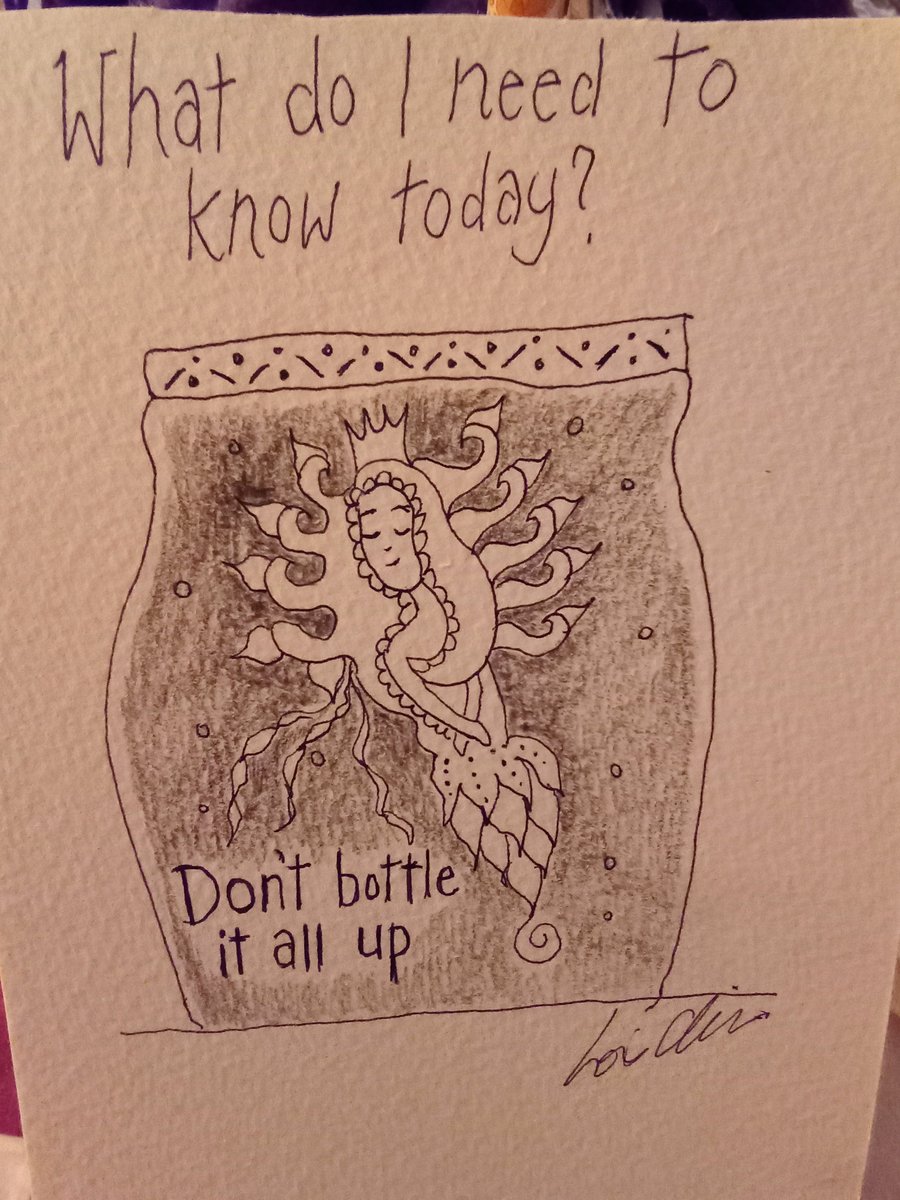 What do I need to
know today?
Don't bottle
it all up